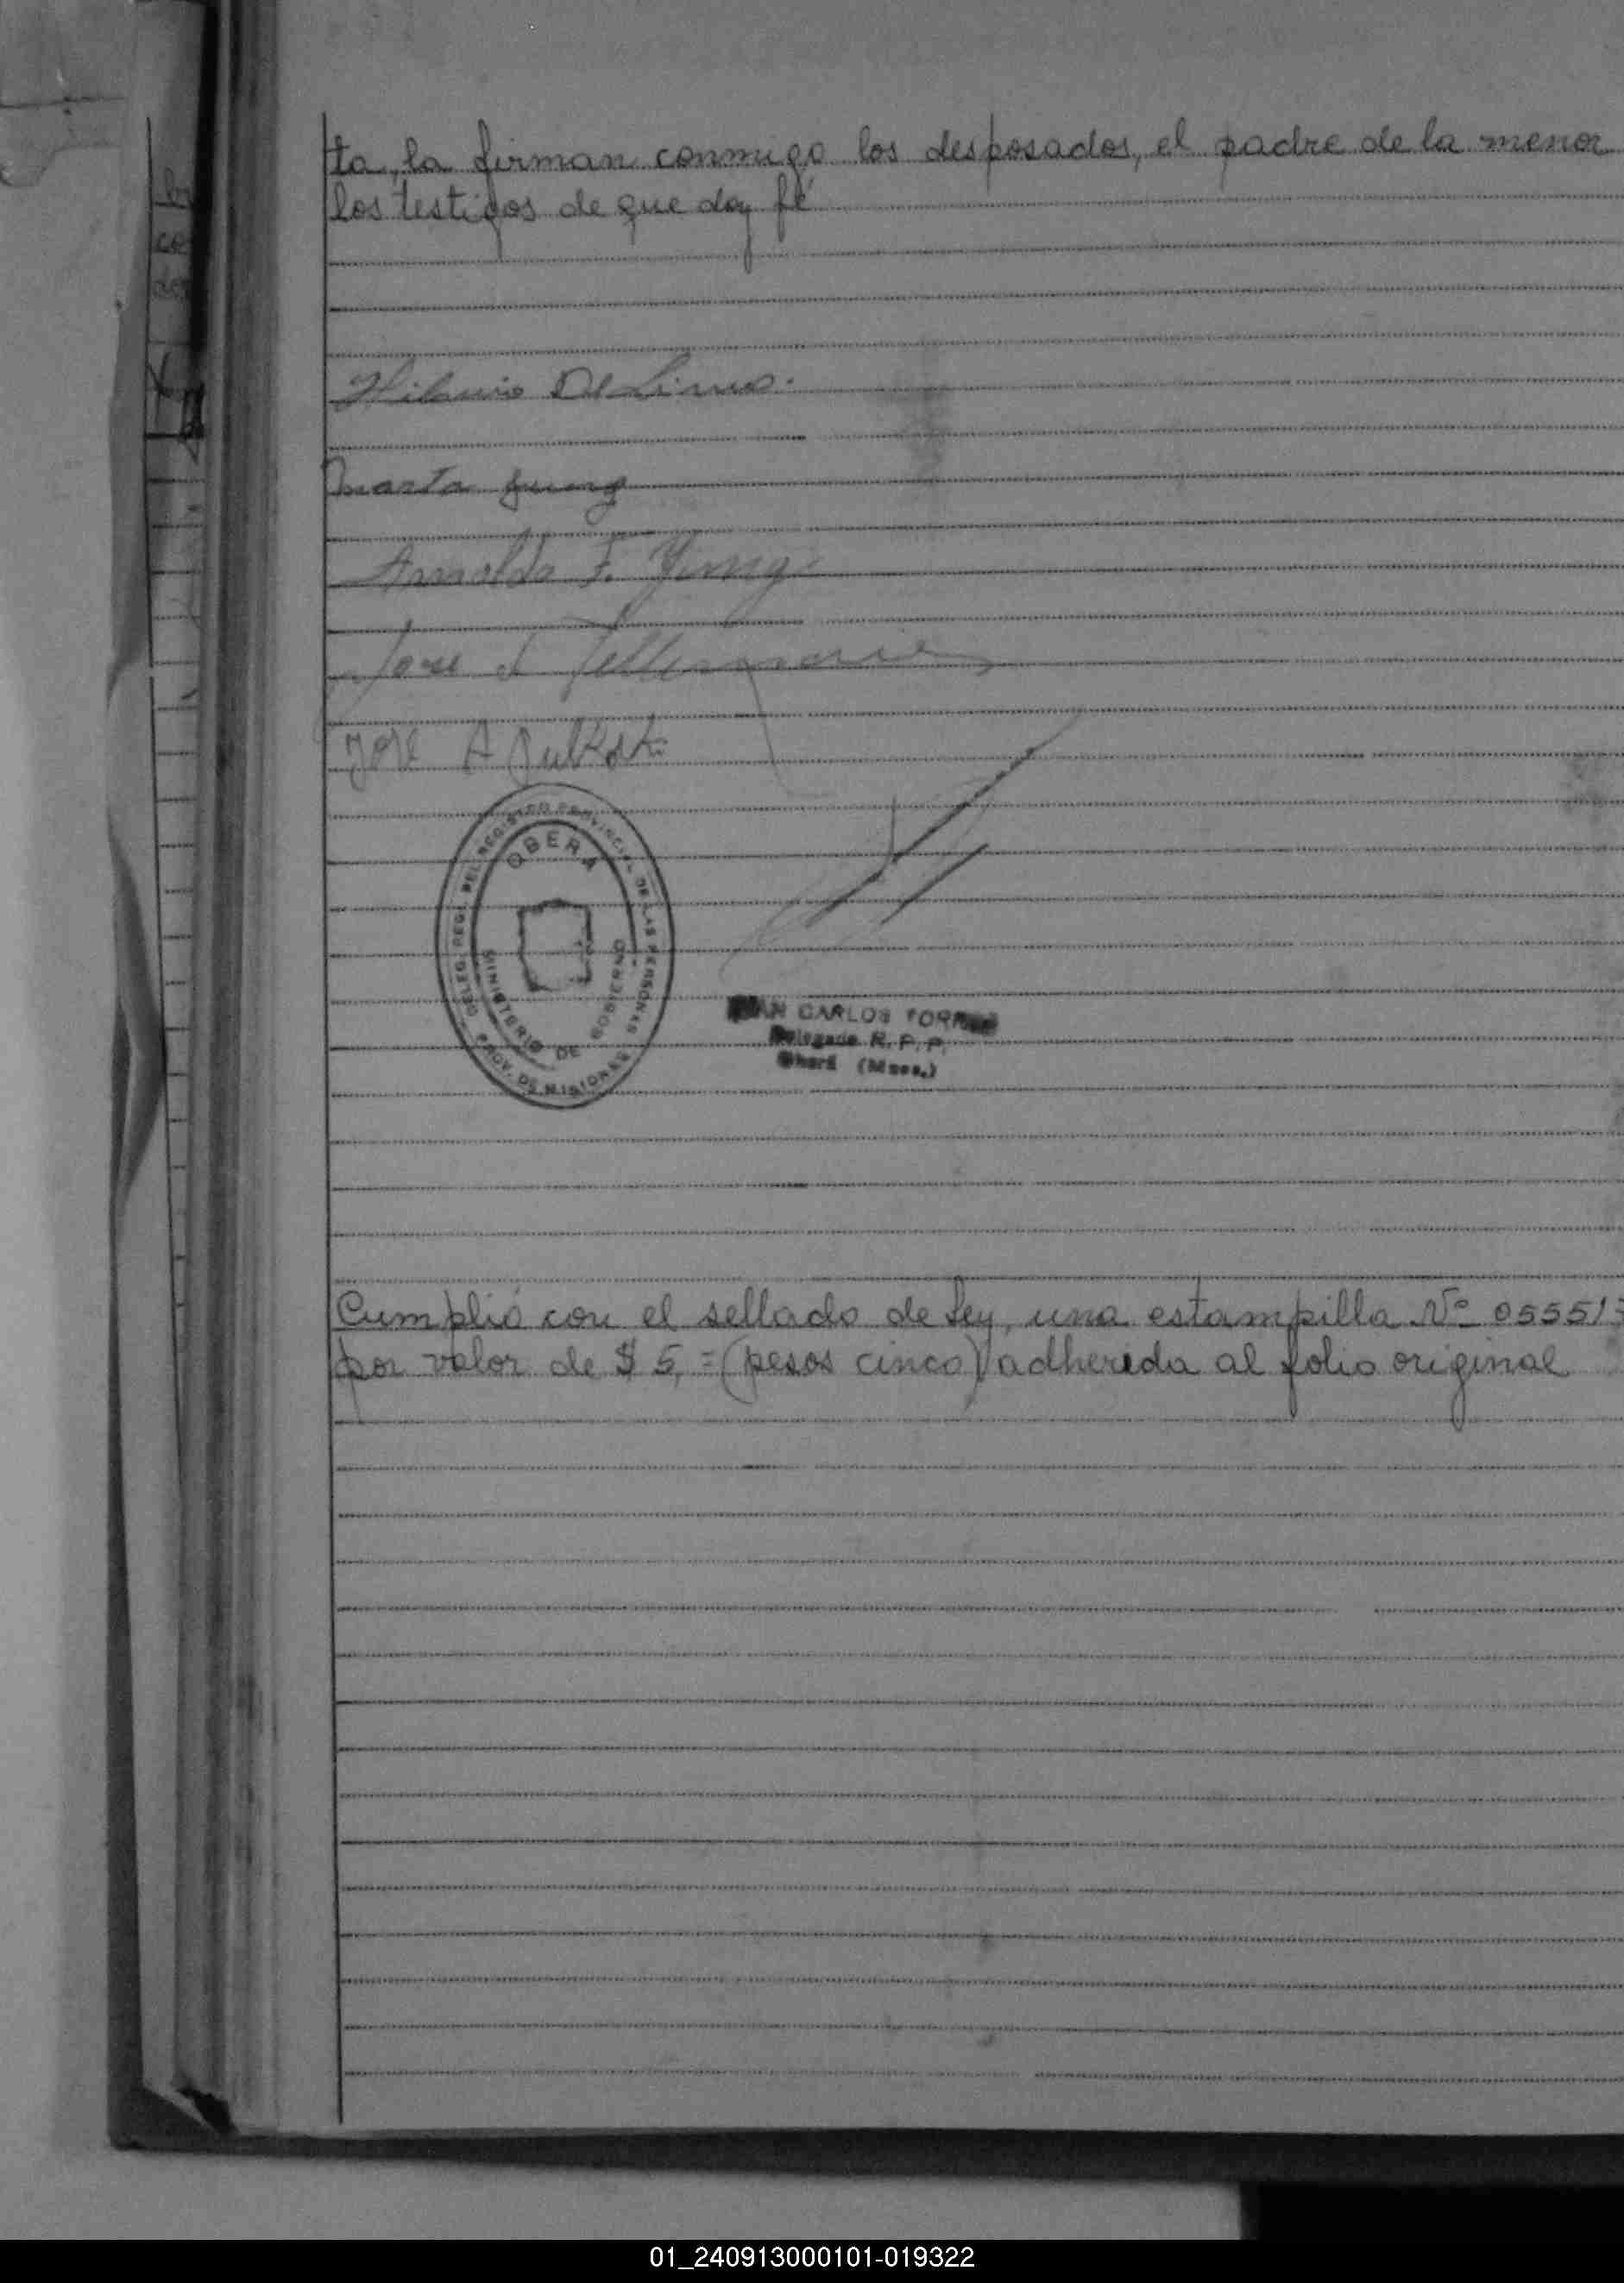 ta, la firman conmigo los desposados, el padre de la menor
los testigos de que doy fé
Hilario De Lima.
Marta Jung
Arnoldo F. Jung
Jose
José A
DELEG. REGL. DEL REGISTRO PROVINCIAL DE LAS PERSONAS
OBERA
MINISTERIO DE GOBIERNO
PROV. DE MISIONES
CARLOS
Delegado R. P. P.
Oberá (Mnes.)
Cumplió con el sellado de Ley, una estampilla Nº 05551
por valor de $ 5,= (pesos cinco) adherida al folio original
01_240913000101-019322